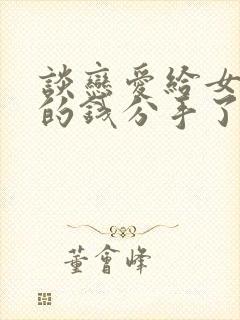 談戀愛給女
的錢分手了
董會峰